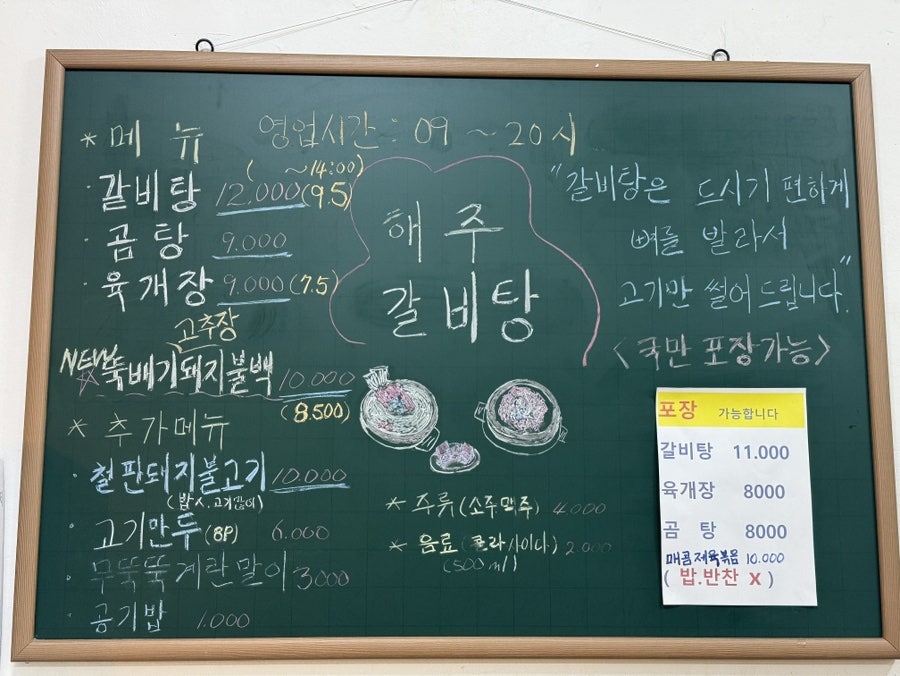 * 메뉴 영업시간 : 09 ~ 20시
( ~14:00)
· 갈비탕 12.000 (9.5)
· 곰탕 9.000
· 육개장 9.000 (7.5)
고추장
NEW ☆ 뚝배기돼지불백 10.000
(8.500)
* 추가메뉴
· 철판돼지불고기 10.000
(밥x. 고기많이)
· 고기만두 (8P) 6.000
· 무뚝뚝계란말이 3000
· 공기밥 1.000
해주
갈비탕
* 주류 (소주맥주) 4.000
* 음료 (콜라사이다) 2.000
(500ml)
"갈비탕은 드시기 편하게
뼈를 발라서
고기만 썰어드립니다."
<국만 포장가능>
포장 가능합니다
갈비탕 11.000
육개장 8000
곰 탕 8000
매콤제육볶음 10.000
( 밥.반찬 X )